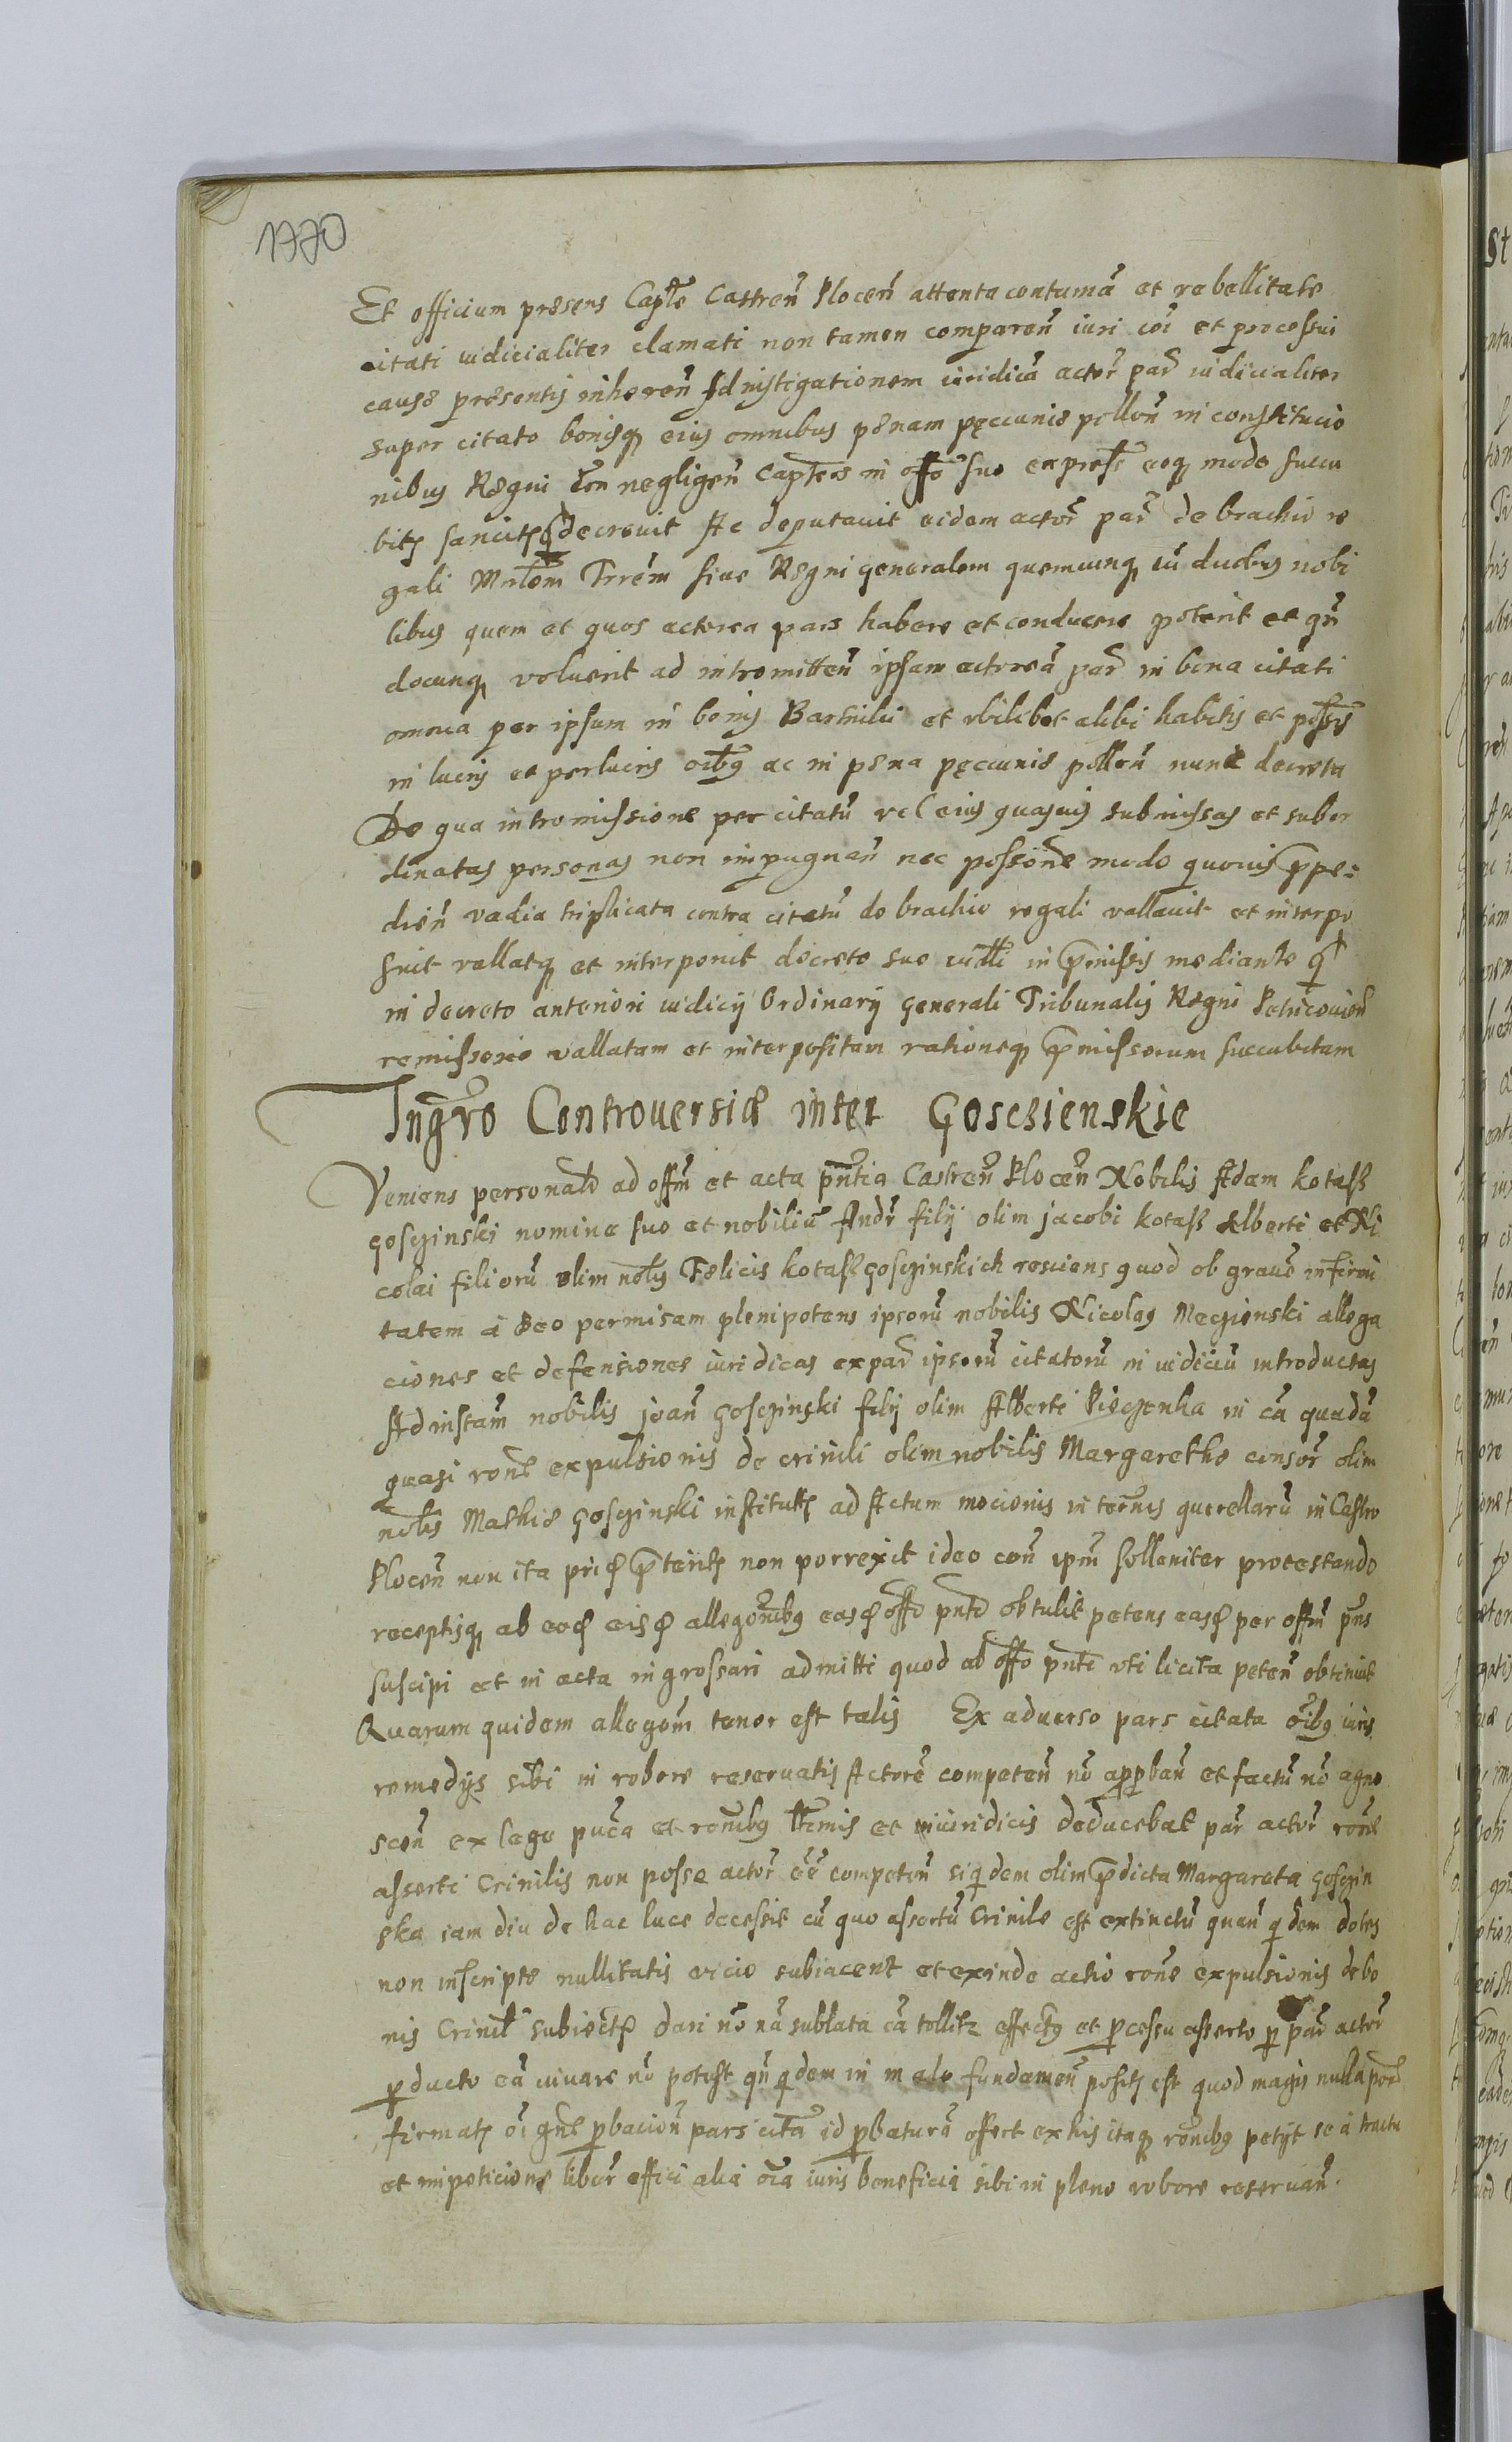 1770
Et officium presens Capłe Castreñ Płoceñ attenta contumã et rebellitate
citati iudicialiter clamati non tamen compareñ iuri coĩ et processui
cause presentis inhereñ Ad instigationem iuridicã actoř pař iudicialiter
super citato bonisq eius omnibus penam peccunie pollõn in constitucio
nibus Regni negligeñ Capteos in offõ suo eoq modo succu
bitę sancitę decrevit Ac deputauit eidem actoř pař de brachio re
gali Mrłem Trrem siue Regni generalem quemcunq cũ duobus nobi
libus quem et quos actorea pars habere et conducere poterit et qñ
docunq voluerit ad intromitteñ ipsam actoreã pař in bona citati
omnia per ipsum in bonis et vbilibet alibi habitis et possis
in lucris et perlucris oĩbus ac in pena peccunie polleñ nunc decreta
De qua intromissione per citatũ vel eius quasuis submissas et subor
dinatas personas non impugnañ nec possione modo quouis ppe=
dieñ vadia triplicata contra citatũ de brachio regali vallauit et interpo
suit vallatq et interponit decreto suo iudłi in pmissis mediante
in decreto anteriori iudicij Ordinarij Generali Tribunalis Regni Petricouieñ
remissorio vallatam et interpositam rationeq pmissorum succubitam
Ingro Controuersiæ inter Goscsienskie
Veniens personalr ad offm et acta pñtia Castreñ Płoceñ Nobilis Adam kotaß
Gosczinski nomine suo et nobiliũ Andř filij olim jacobi kotaß Alberti et Ni
colai filiorũ olim nobłis Felicis kotaß Gosczinskich resciens quod ob grauẽ infirmi
tatem à Deo permisam plenipotens ipsorũ nobilis Nicolas allega
ciones et defensiones iuridicas ex pař ipsorũ citatorũ in iudiciũ introductas
Ad instam̃ nobilis joañ Gosczinski filij olim Alberti in cã quadã
quasi roñe expulsionis de crinili olim nobilis Margarethe consoř olim
nobłis Mathie Gosczinski institutę ad Actum mocionis in termis querellarũ in Castro
Płoceñ non ita prid pteritę non porrexit ideo coñ ipm̃ solleniter protestando
receptisq ab eod eisd allegonibus easd offõ pntỉ obtulit petens easd per offm pñs
suscipi et in acta ingrossari admitti quod ab offõ pnti vti licita peteñ obtinuit
Quarum quidem allegom̃ tenor est talis Ex aduerso pars citata oĩbus iuris
remedijs sibi in robore reseruatis Actorẽ competeñ nõ approbañ et factũ nõ agno
sceñ ex lege et roñibus łtimis et iuiuridicis deducebat pař actoř roñe
asserti Crinilis non posse actoř eẽ competeñ siqdem olim pdicta Margareta Gosczin
ska iam diu de hac luce decessit cũ quo assertũ Crinile est extinctũ quañ qdem dotes
non inscripte nullitatis vicio subiacent et exinde actio roñe expulsionis de bo
nis Crinił subiectę dari nõ nã sublata cã tollitr effectus et pcessu asserto p pař actoř
pducto eã iuuare nõ potest qñ qdem in malo fundamen positę est quod magis nulla
firmatę oĩ gñe pbacioñ pars citã id pbaturã offert ex his itaq ronibus petijt se à tractu
et impeticione liberr effici alia oĩa iuris beneficia sibi in pleno robore reseruañ.